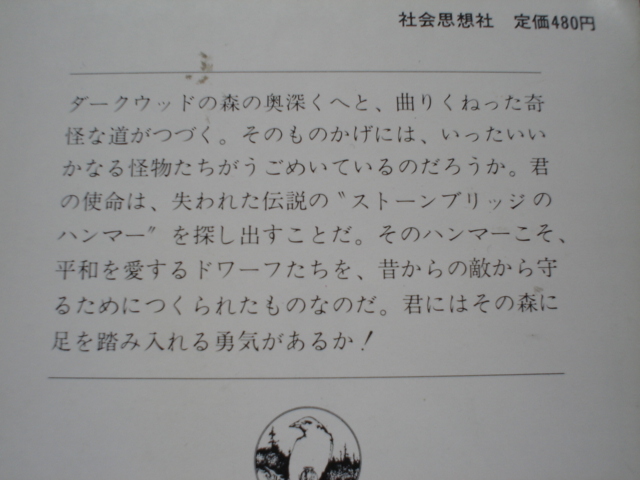 社会思想社　定価480円
ダークウッドの森の奥深くへと、曲りくねった奇
怪な道がつづく。そのものかげには、いったいい
かなる怪物たちがうごめいているのだろうか。君
の使命は、失われた伝説の〝ストーンブリッジの
ハンマー〟を探し出すことだ。そのハンマーこそ、
平和を愛するドワーフたちを、昔からの敵から守
るためにつくられたものなのだ。君にはその森に
足を踏み入れる勇気があるか！